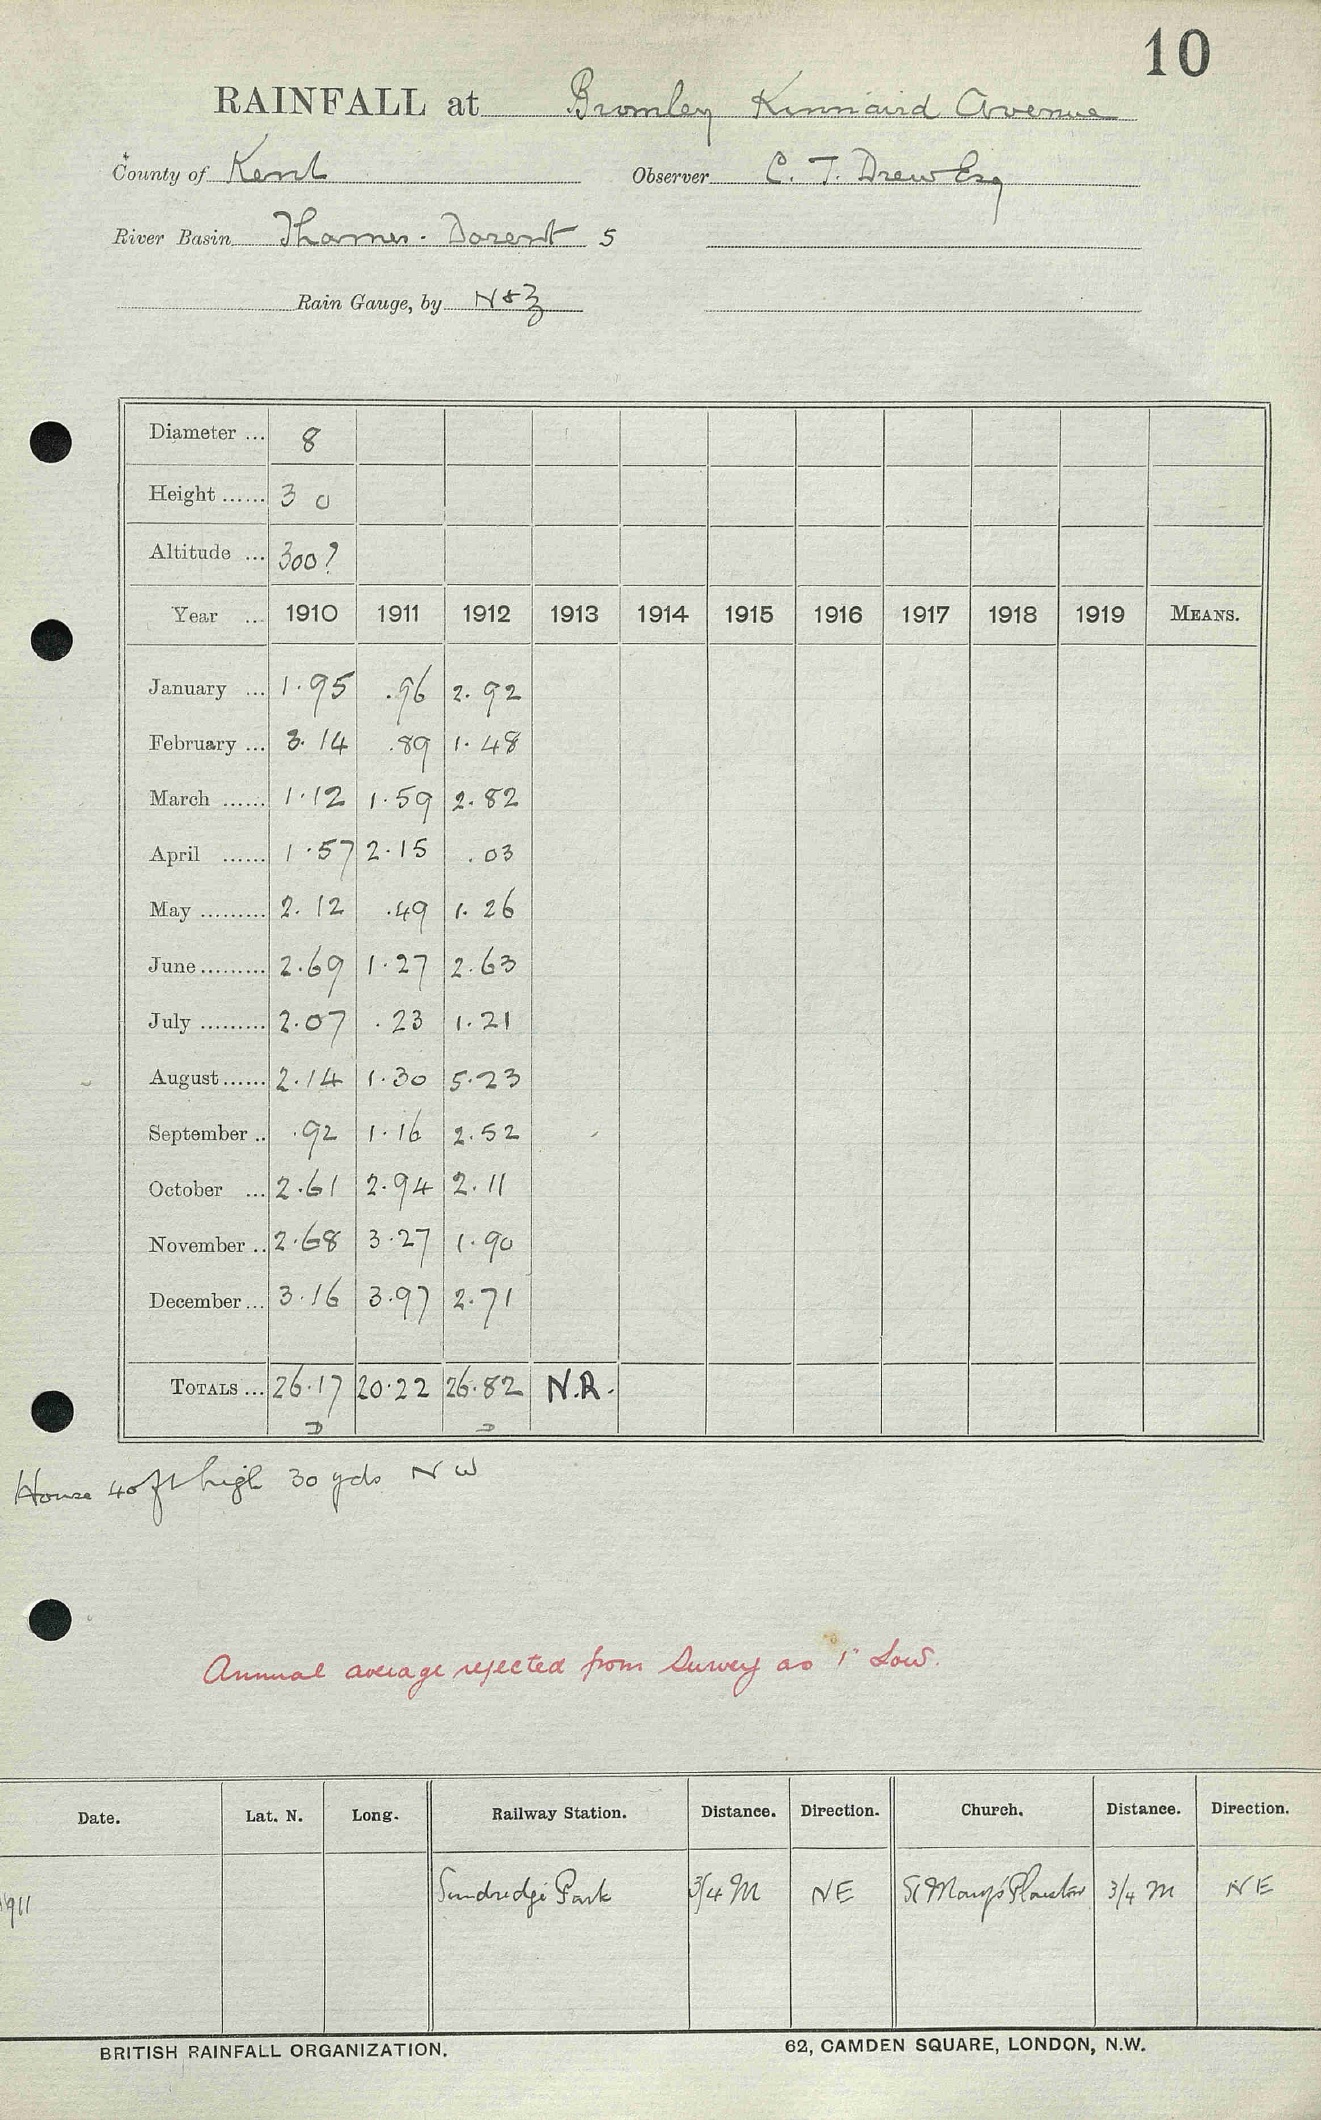 10
RAINFALL at Bromley Kinnaird Avenue
County of Kent Observer C. T. Drew Esq
River Basin Thames - Darent 5
Rain Gauge, by N & Z
Diameter ... 8
Height ...... 3 0
Altitude ... 300?
Year ... 1910 1911 1912 1913 1914 1915 1916 1917 1918 1919 MEANS.
January ... 1.95 .96 2.92
February ... 3.14 .89 1.48
March ...... 1.12 1.59 2.82
April ...... 1.57 2.15 .03
May ......... 2.12 .49 1.26
June ......... 2.69 1.27 2.63
July ......... 2.07 .23 1.21
August ...... 2.14 1.30 5.23
September .. .92 1.16 2.52
October ... 2.61 2.94 2.11
November .. 2.68 3.27 1.90
December ... 3.16 3.97 2.71
TOTALS ... 26.17 20.22 26.82 N.R.
D D
House 40 ft high 30 yds N W
Annual average rejected from Survey as 1" Low.
Date. Lat. N. Long. Railway Station. Distance. Direction. Church. Distance. Direction.
1911 Sundridge Park 3/4 M NE St Mary's Plaistow 3/4 M NE
BRITISH RAINFALL ORGANIZATION. 62, CAMDEN SQUARE, LONDON, N.W.